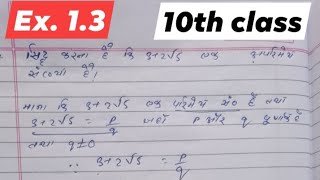 Ex. 1.3
10th class
सिद्ध करना है कि 3+2√5 एक अपरिमेय
संख्या है।
माना कि 3+2√5 एक परिमेय सं० है तथा
3+2√5 = p/q जहाँ p और q पूर्णांक है
तथा q≠0
∴ 3+2√5 = p/q